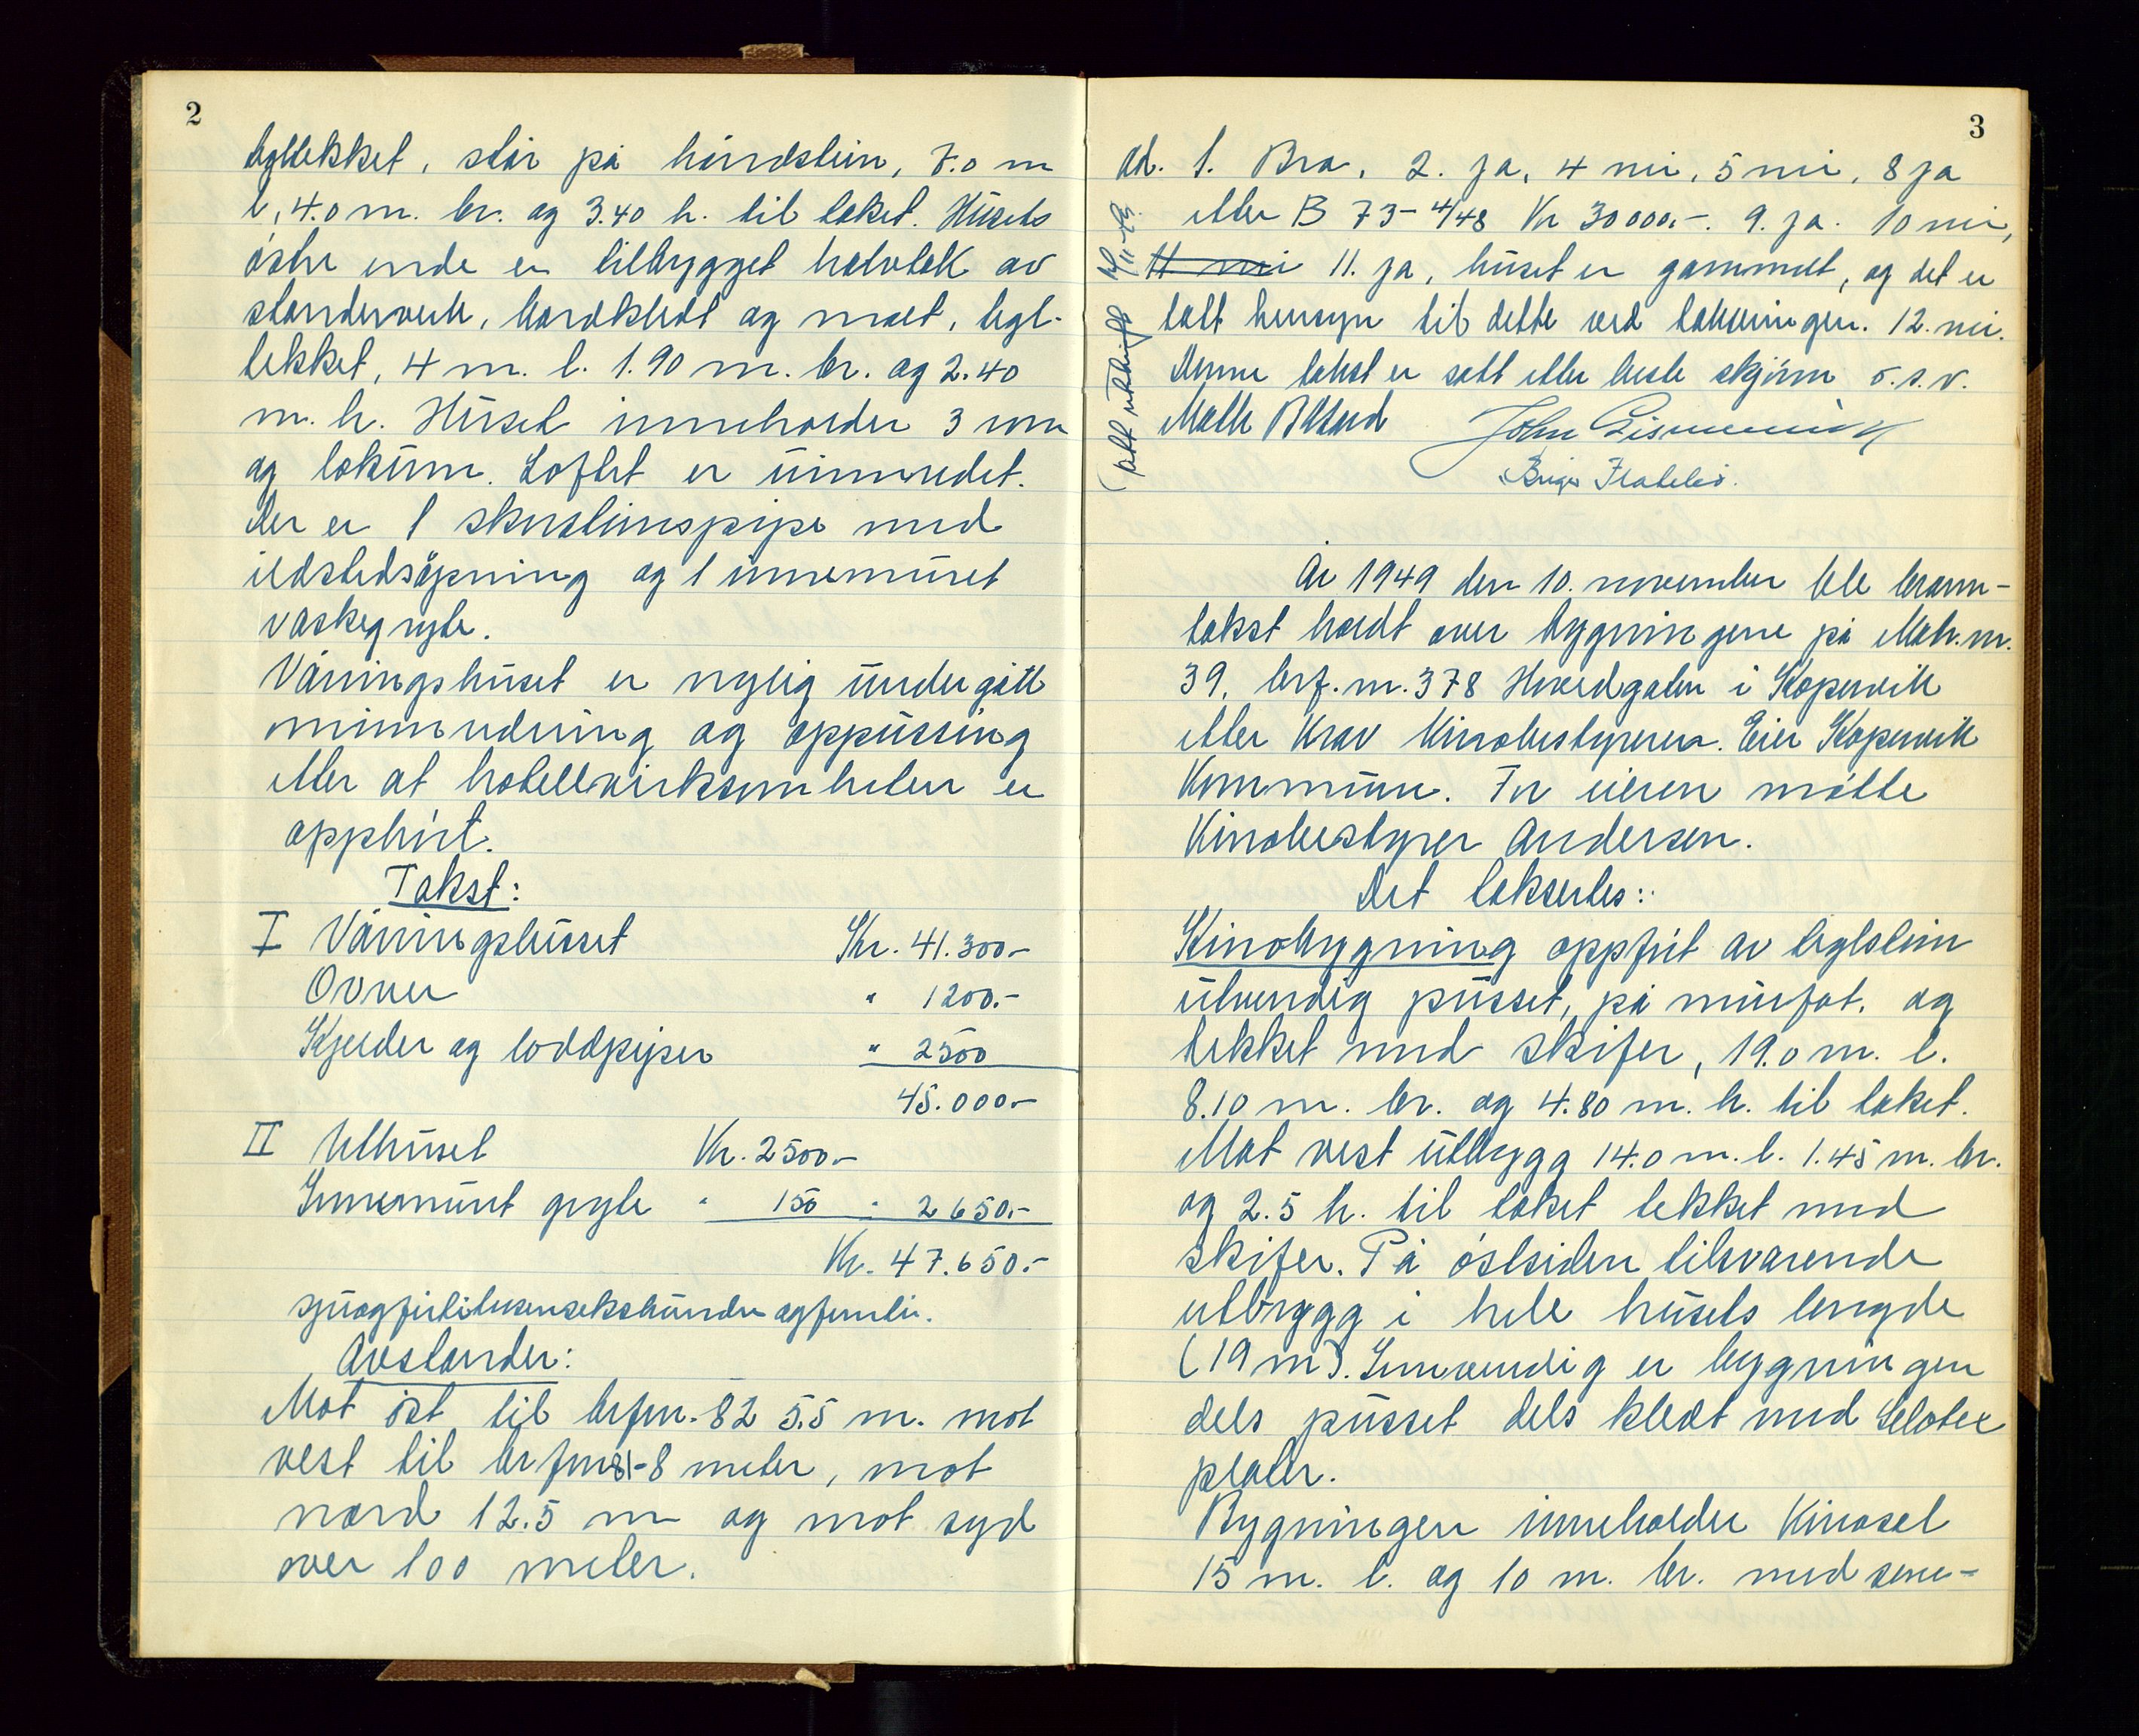 2
tegltekket, står på håndstein, 7.0 m
l, 4.0 m. br. og 3.40 h. til taket. Husets
østre ende er tilbygget halvtak av
standerverk, bordkledt og malt, tegl-
tekket, 4 m. l. 1.90 m. br. og 2.40
m. h. Huset inneholder 3 rom
og lokum. Loftet er uinnredet.
Der er 1 skursteinspipe med
ildstedsåpning og 1 innemuret
vaskegryte.
Våningshuset er nylig undergått
ominnredning og oppussing
etter at hotellvirksomheten er
opphørt.
Takst:
I Våningshuset Kr. 41.300.-
Ovner " 1200.-
Kjeler og loddpiper " 2500
45.000.-
II Uthuset Kr. 2500.-
Innemuret gryte " 150 " 2650.-
Kr. 47.650.-
sjuogførtitusensekshundreogfemti.
Avstander:
Mot øst til brfnr. 82 5.5 m. mot
vest til brfnr 81-8 meter, mot
nord 12.5 m og mot syd
over 100 meter.
3
ad. 1. Bra, 2. ja, 4 nei, 5 nei, 8 ja
etter B 73-4/48 Kr 30000.-. 9. ja. 10 nei,
11 nei 11. ja, huset er gammelt, og det er
tatt hensyn til dette ved takseringen. 12. nei.
Denne takst er satt etter beste skjønn o.s.v.
John
(tatt utskrift
År 1949 den 10. november ble brann-
takst holdt over bygningene på Matr. nr.
39, brf. nr. 378 Hovedgaten i Kopervik
etter krav Kinobestyreren. Eier Kopervik
Kommune. For eieren møtte
Kinobestyrer Andersen.
Det takseertes:
Kinobygning oppført av teglstein
utvendig pusset, på murfot. og
tekket med skifer, 19.0 m. l.
8.10 m. br. og 4.80 m. h. til taket.
Mot vest utbygg 14.0 m. l. 1.45 m. br.
og 2.5 h. til taket tekket med
skifer. På østsiden tilsvarende
utbrygg i hele husets lengde
(19 m). Innvendig er bygningen
dels pusset dels kledt med Selotex
plater.
Bygningen inneholder Kinosal
15 m. l. og 10 m. br. med sene-